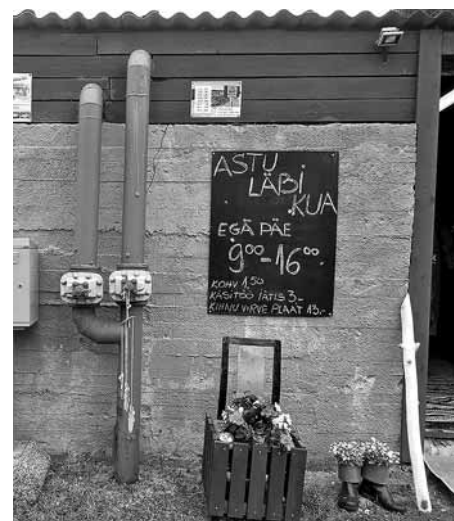 ASTU
LÄBI
KUA
EGÄ PÄE
9⁰⁰-16⁰⁰
KOHV 1,50
KÄSITÖÖ JÄTIS 3.-
KIHNU VIRVE PLAAT 15.-